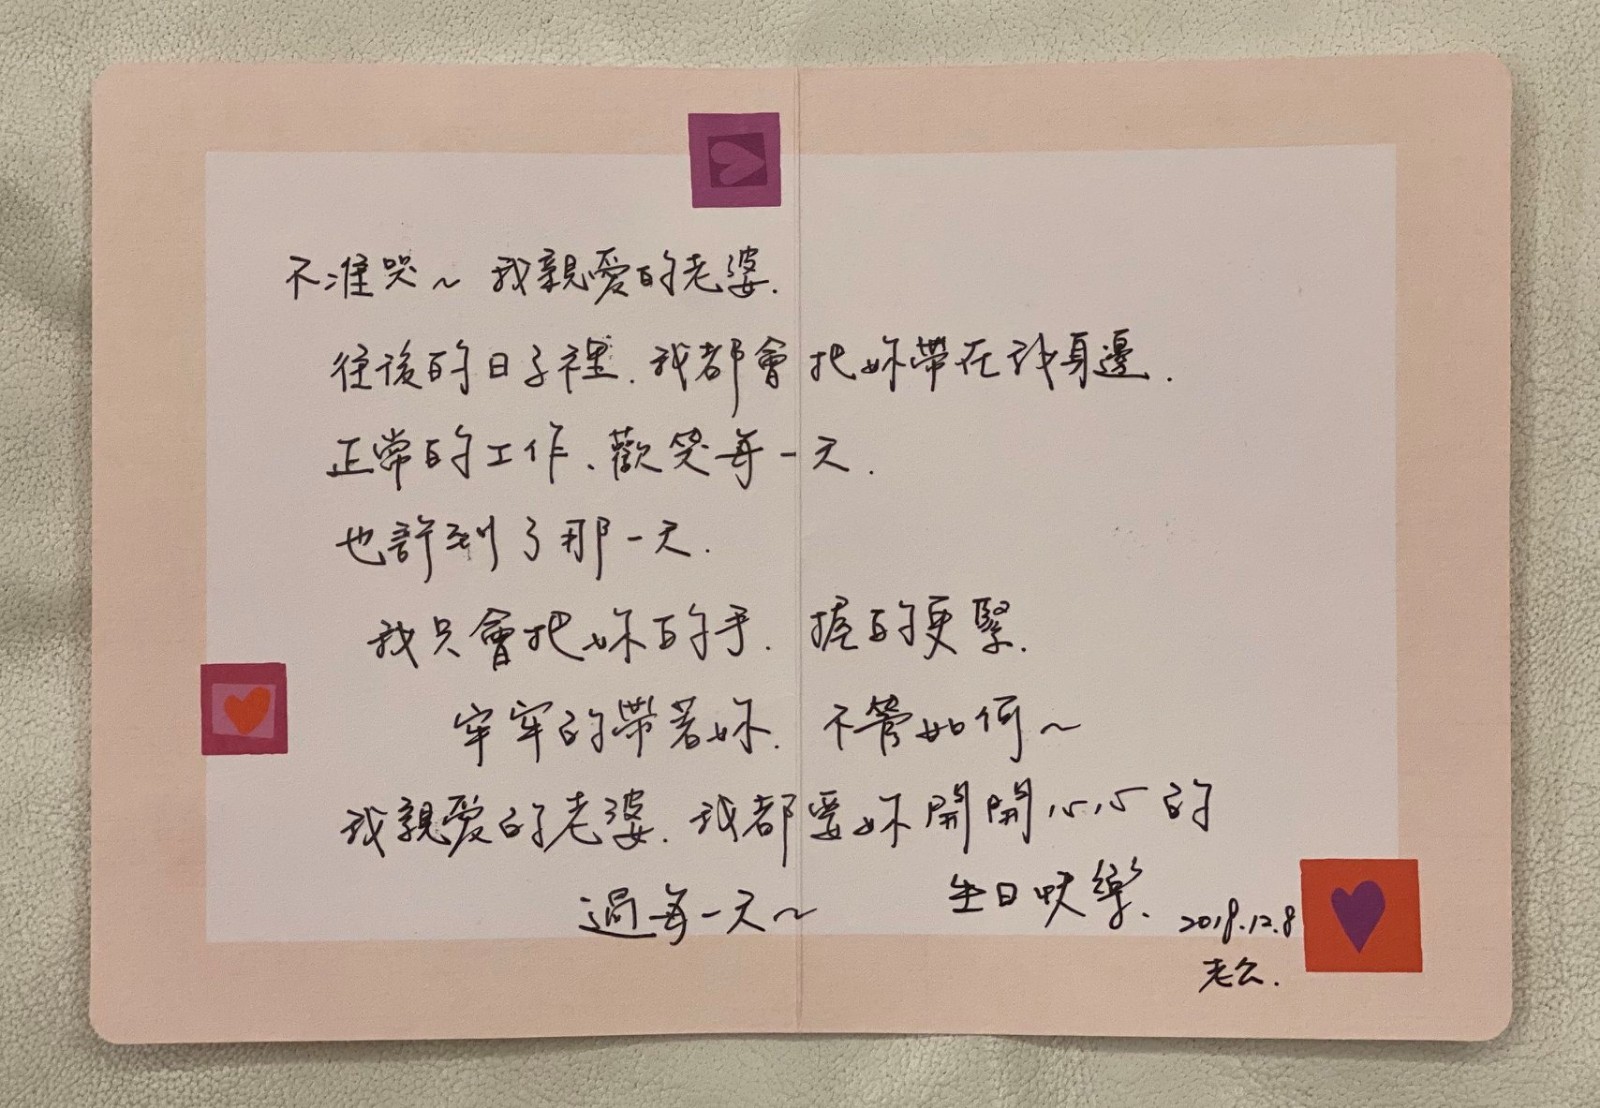 不准哭～我親愛的老婆.
往後的日子裡.我都會把妳帶在我身邊.
正常的工作、歡笑每一天.
也許到了那一天.
我只會把妳的手.握的更緊.
牢牢的帶著妳.不管如何～
我親愛的老婆.我都要妳開開心心的
過每一天～
生日快樂.
2018.12.8
老公.